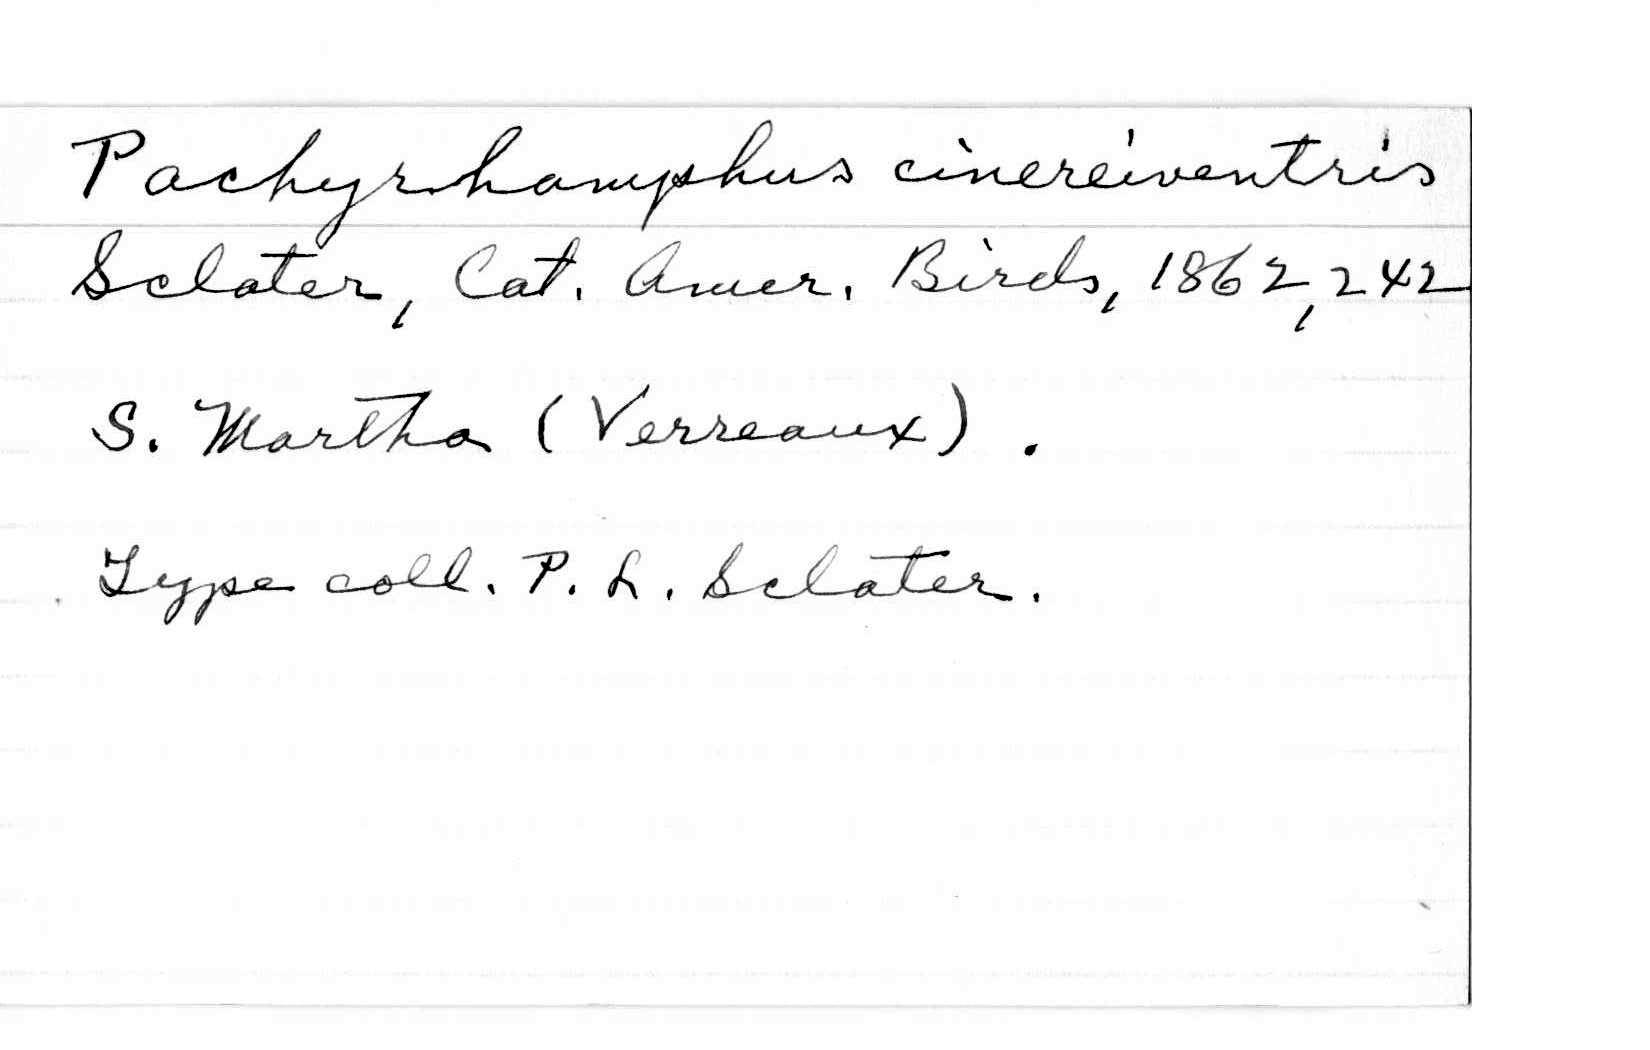 Pachyrhamphus cinereiventris
Sclater, Cat. Amer. Birds, 1862, 242
S. Martha (Verreaux).
Type coll. P. L. Sclater.